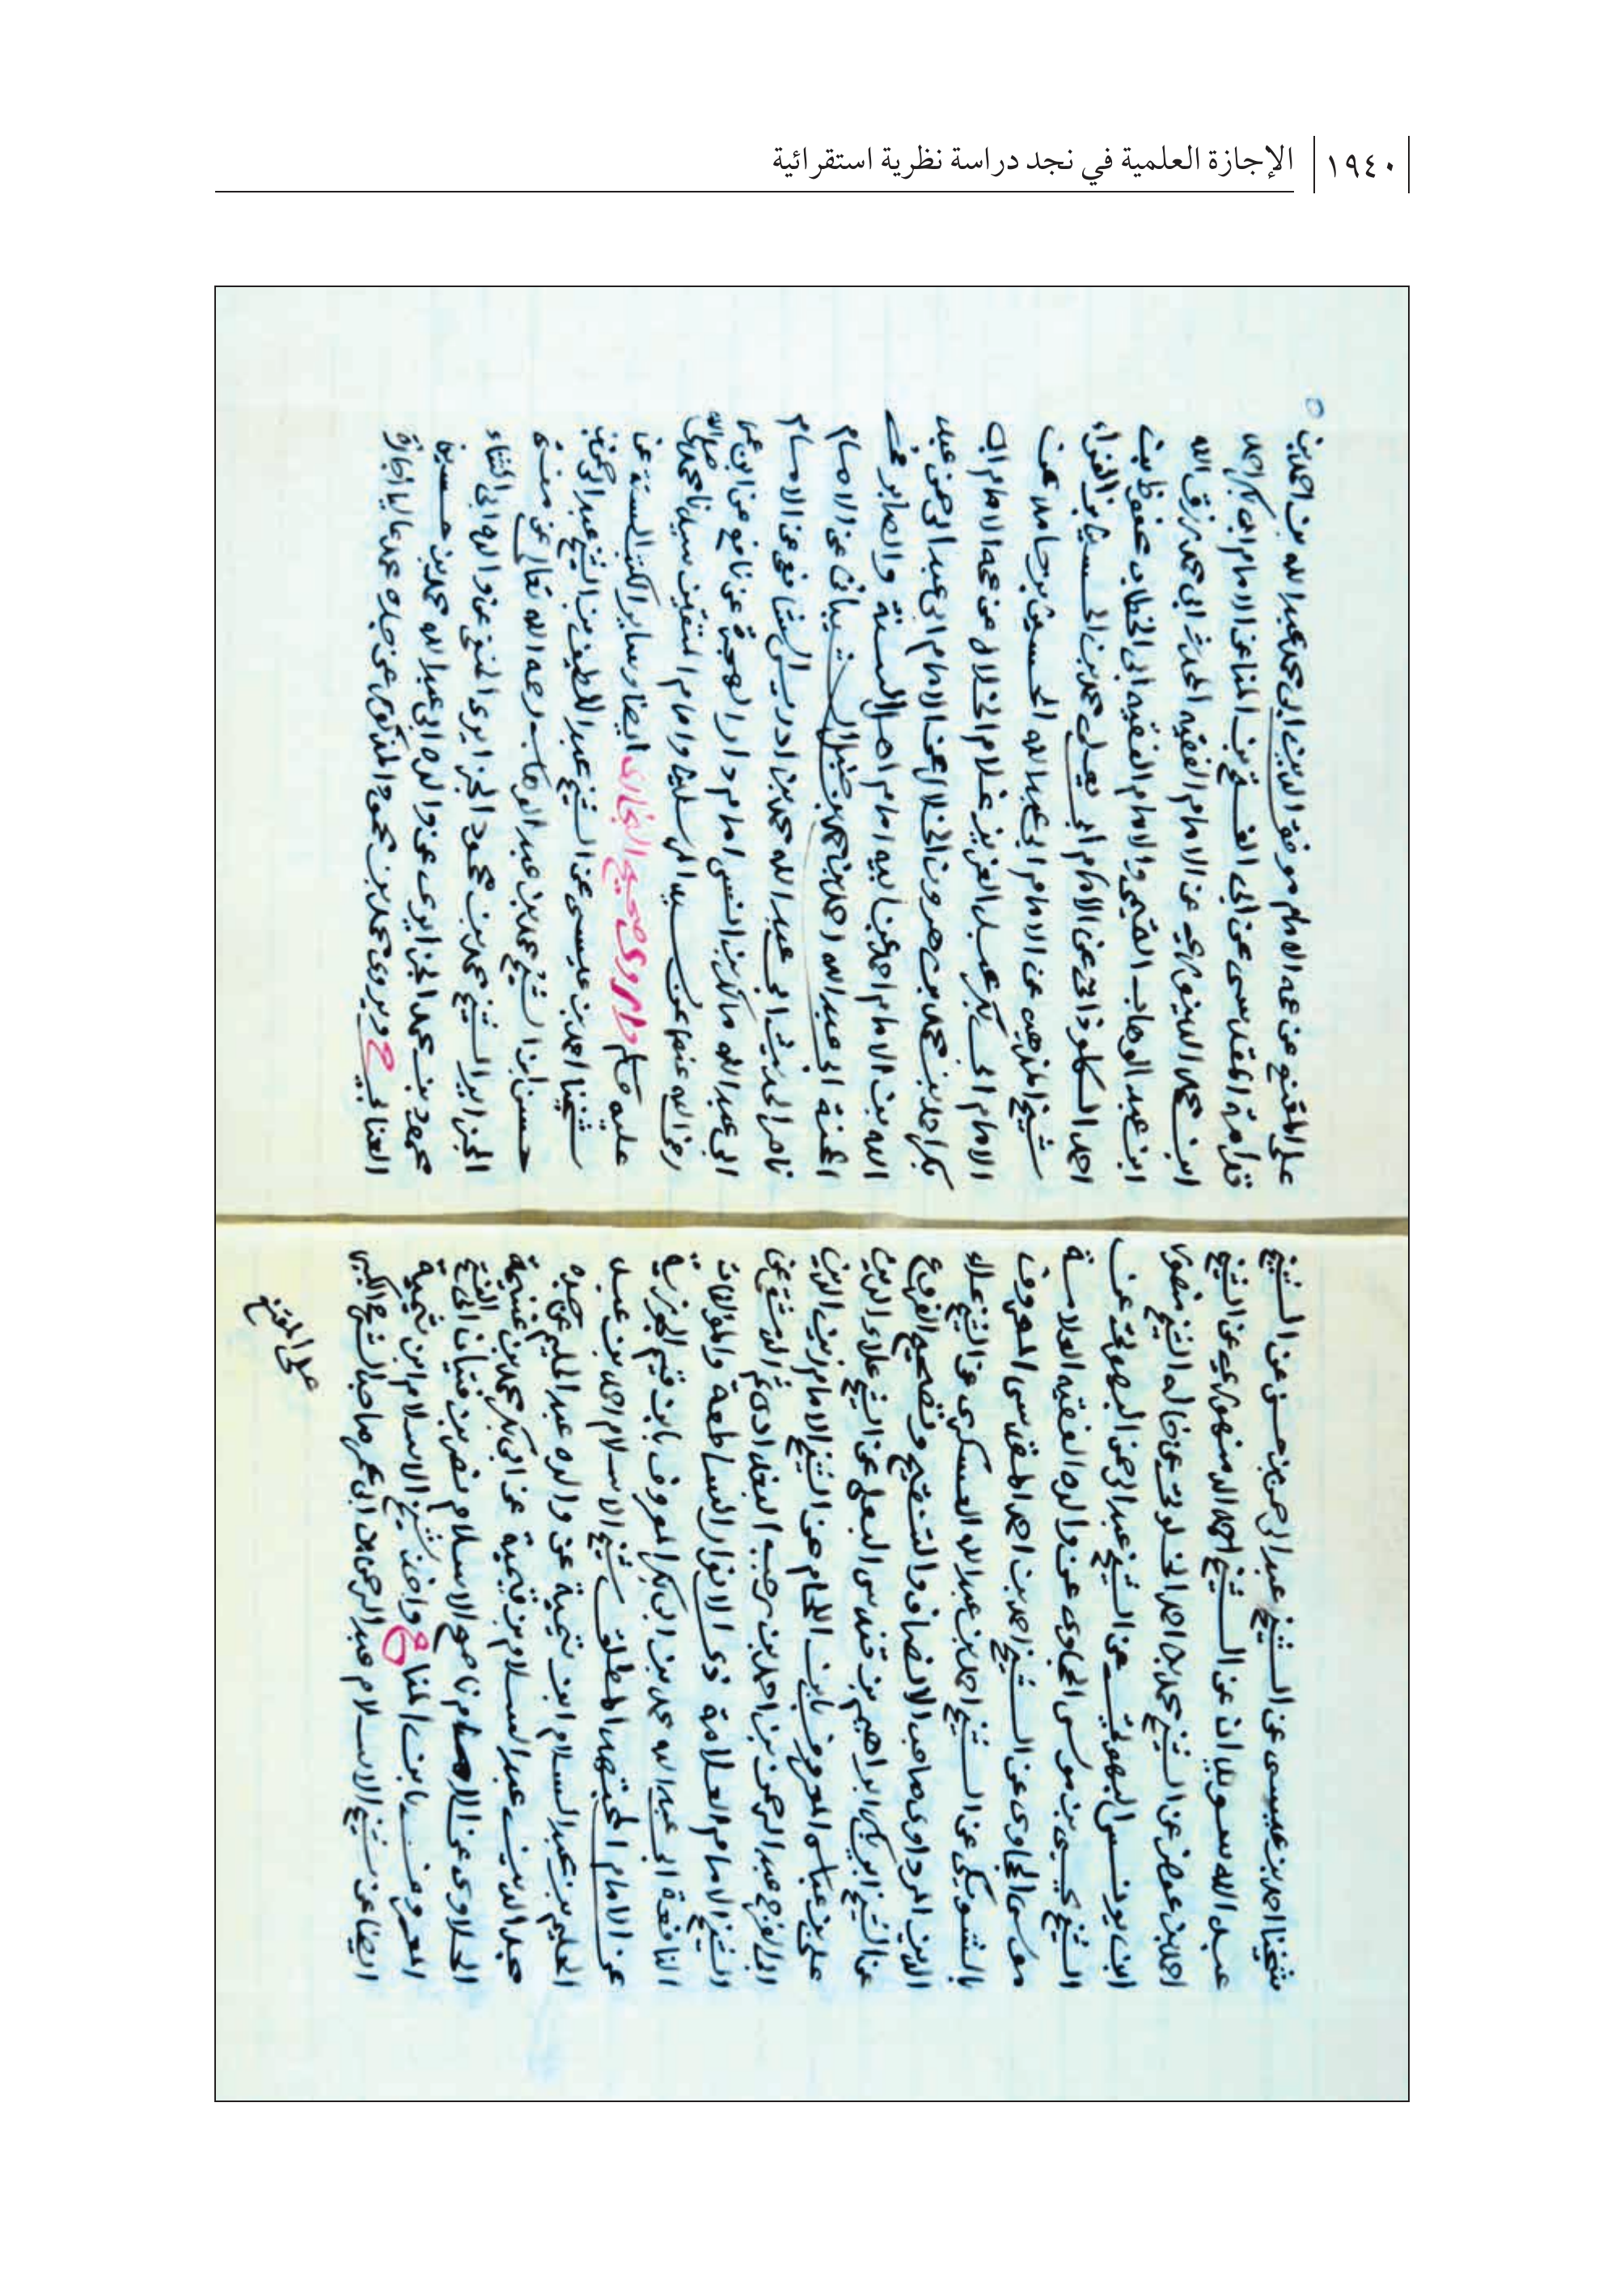 ١٩٤٠
الإجازة العلمية في نجد دراسة نظرية استقرائية
شيخنا احمد بن عيسى عن الشيخ عبد الرحمن بن حسن عن الشيخ
عبد الله سويدان عن الشيخ احمد الدمنهوري عن الشيخ
احمد بن عوض عن الشيخ محمد بن احمد الخلوتي عن خاله الشيخ منصور
ابن يونس البهوتي عن الشيخ عبد الرحمن البهوتي عن
الشيخ يحيى بن موسى الحجاوي عن والده الفقيه العلامة
موسى الحجاوي عن الشيخ احمد بن احمد المقدسي المعروف
بالشويكي عن الشيخ احمد بن عبد الله العسكري عن الشيخ علاء
الدين المرداوي صاحب الانصاف والتنقيح وتصحيح الفروع
عن الشيخ ابي بكر ابراهيم بن قندس البعلي عن الشيخ علاء الدين
علي بن عباس المعروف بابن اللحام عن الشيخ الامام زين الدين
ابي الفرج عبد الرحمن بن احمد بن رجب البغدادي ثم الدمشقي عن
الشيخ الامام العلامة ذي الانوار الساطعة والمؤلفات
النافعة ابي عبد الله محمد بن ابي بكر المعروف بابن قيم الجوزية
عن الامام المجتهد المطلق شيخ الاسلام احمد بن عبد
الحليم بن عبد السلام ابن تيمية عن والده عبد الحليم عن جده
مجد الدين عبد السلام بن تيمية عن ابي بكر محمد بن غنيمة
الحلاوي عن الامام ناصح الاسلام نصر بن فتيان ابي الفتح
المعروف بابن المنا ح واخذ شيخ الاسلام ابن تيمية
ايضا عن شيخ الاسلام عبد الرحمن ابن ابي عمر صاحب الشرح الكبير
على المقنع
على المقنع عن عمه الامام موفق الدين ابي محمد عبد الله بن احمد بن
قدامة المقدسي عن ابي الفتح بن المنا عن الامام ابي بكر احمد
ابن محمد الدينوري عن الامام الفقيه المحدث ابي محمد رزق الله
ابن عبد الوهاب التميمي والامام الفقيه ابي الخطاب محفوظ بن
احمد الكلوذاني عن الامام ابي يعلى محمد بن الحسين بن الفراء
شيخ المذهب عن الامام ابي عبد الله الحسين بن حامد عن
الامام ابي بكر عبد العزيز غلام الخلال عن عمه الامام ابي
بكر احمد بن محمد بن هرون الخلال عن الامام ابي عبد الرحمن عبد
الله بن الامام احمد عن ابيه امام اهل السنة والصابر في
المحنة ابي عبد الله احمد بن محمد بن حنبل الشيباني عن الامام
ناصر الحديث ابي عبد الله محمد بن ادريس الشافعي عن الامام
ابي عبد الله مالك بن انس امام دار الهجرة عن نافع عن ابن عمر
رضي الله عنهما عن سيد المرسلين وامام المتقين سيدنا محمد صلى الله
عليه وسلم واروي صحيح البخاري ايضا وسائر الكتب الستة عن
شيخنا احمد بن عيسى عن الشيخ عبد اللطيف بن الشيخ عبد الرحمن بن
حسن ابن الشيخ محمد بن عبد الوهاب رحمه الله تعالى عن مفتي
الجزائر الشيخ محمد بن محمود الجزايري الحنفي عن والده ابي الثناء
محمود بن محمد الجزايري عن والده ابي عبد الله محمد بن حسين
العنابي ح ويروي محمد بن محمود المذكور عن جده محمد عاليا اجازة